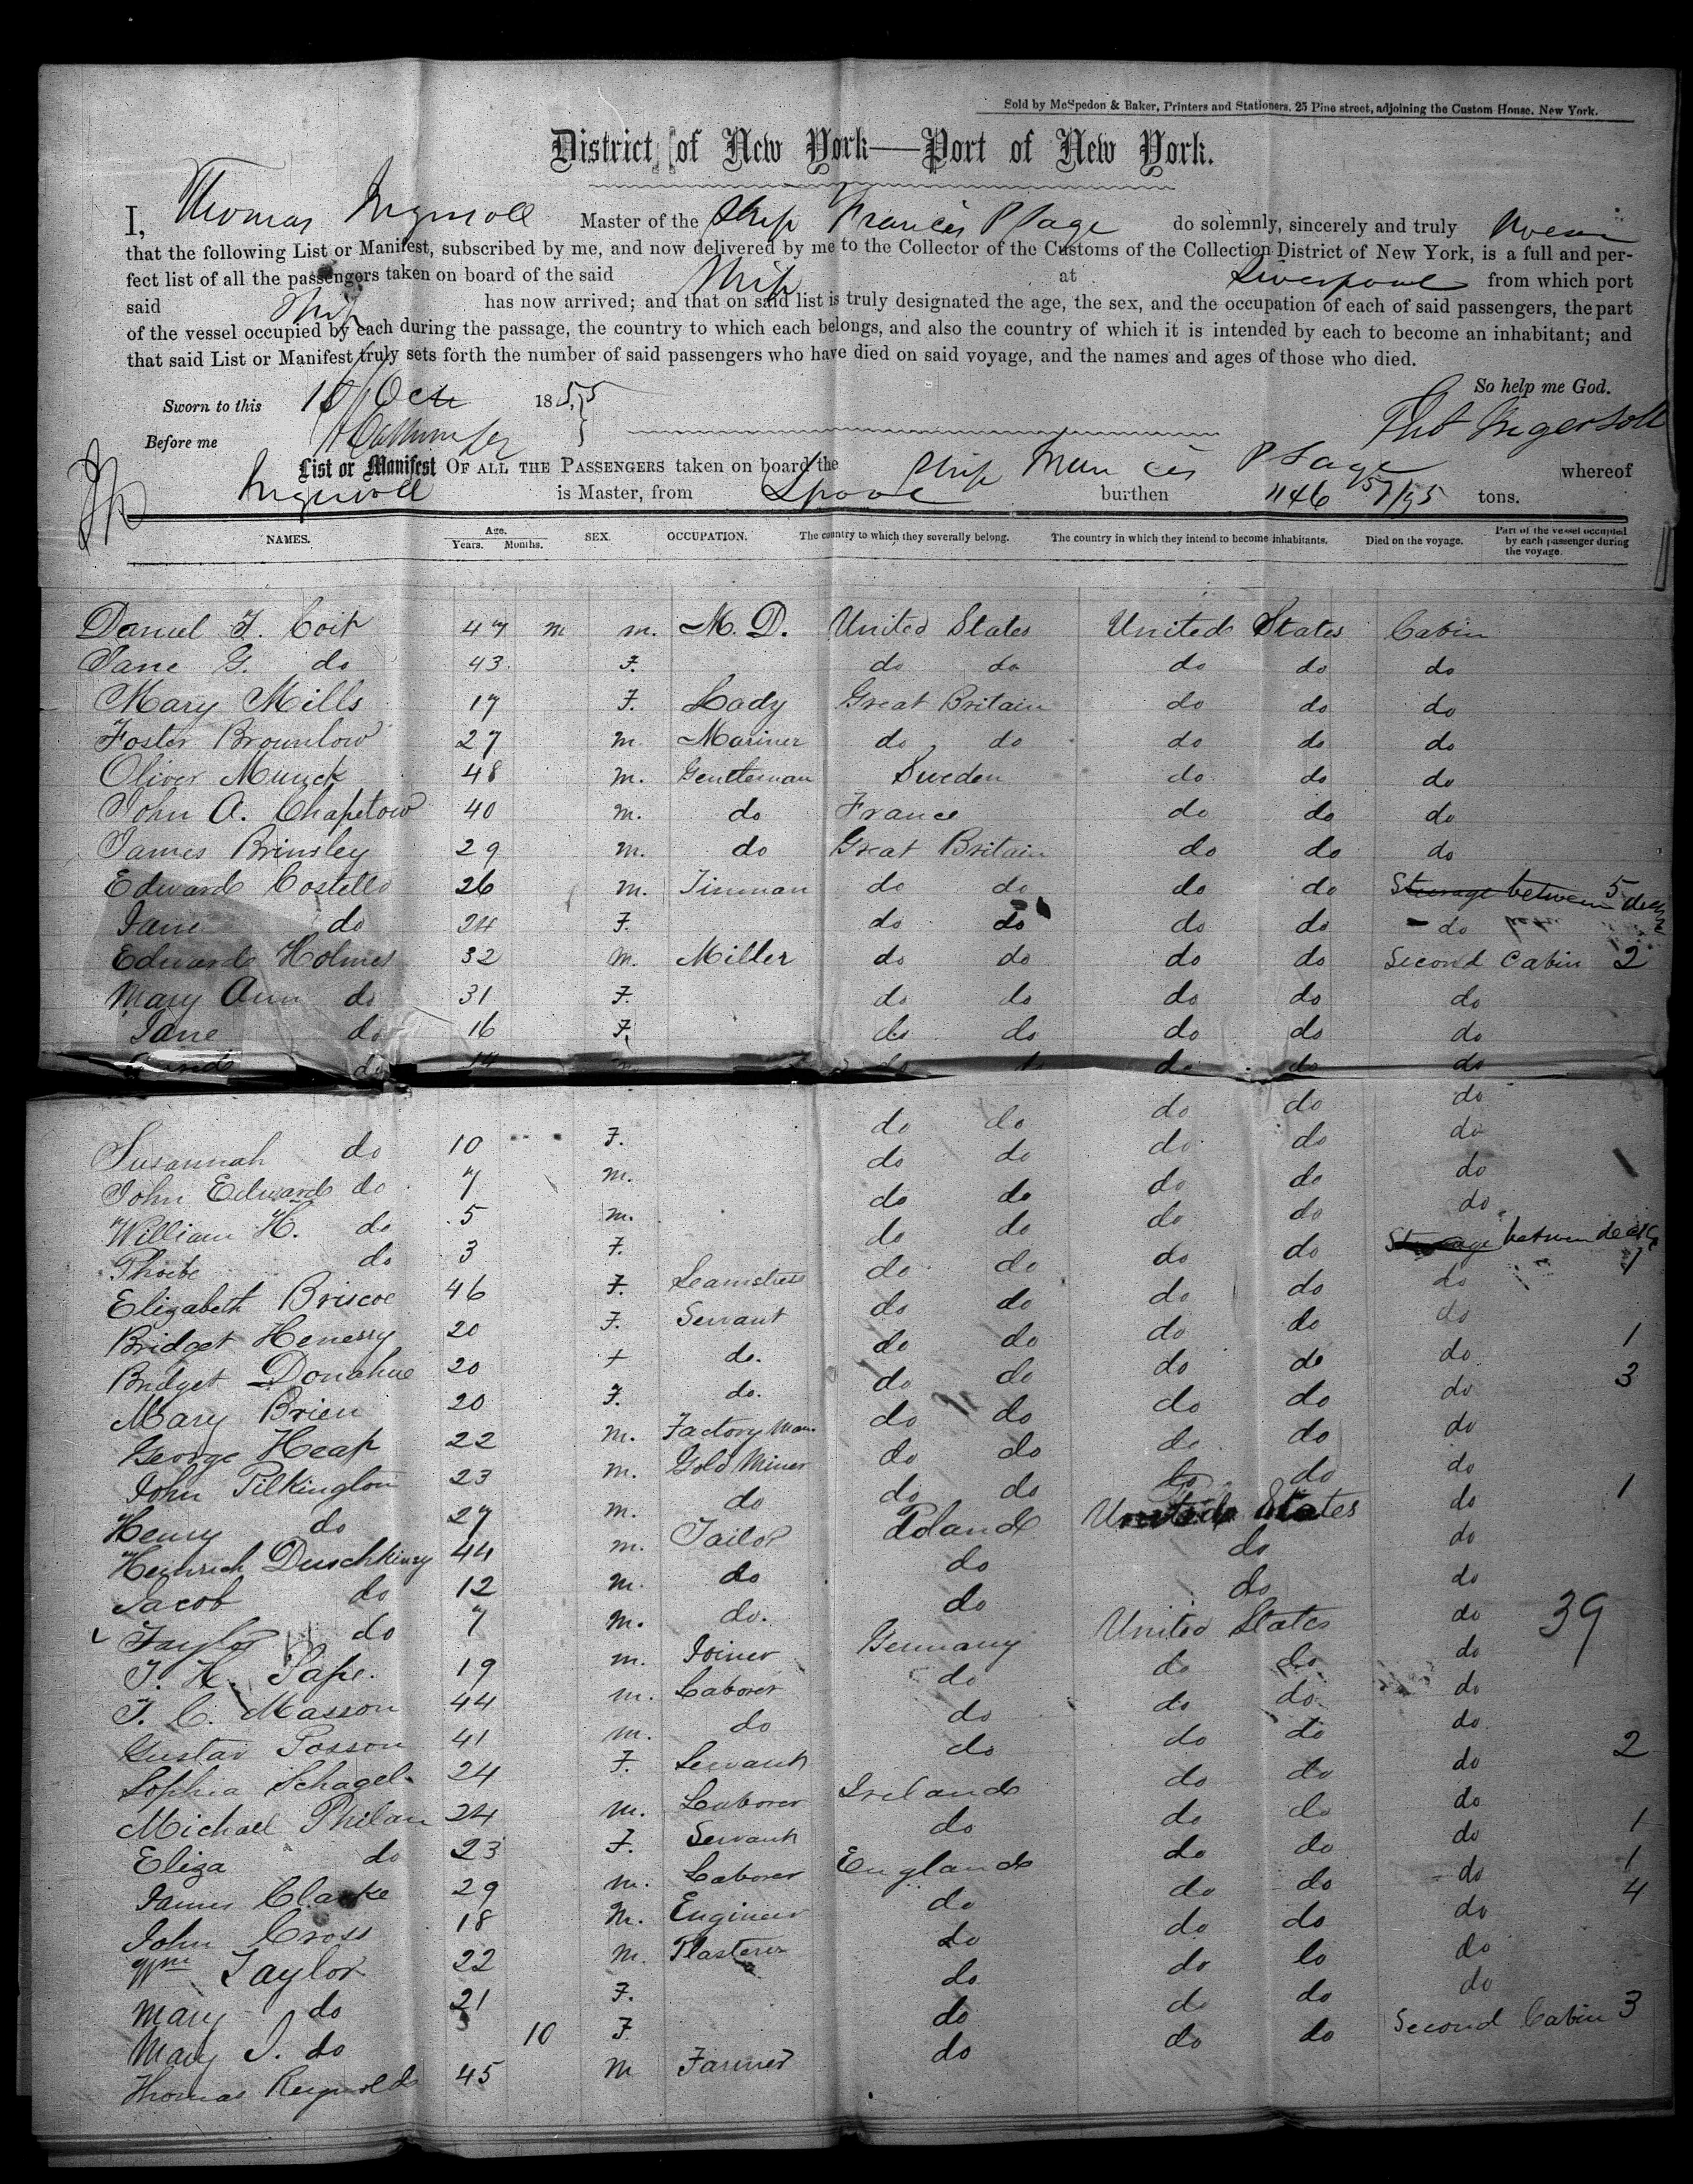 Sold by McSpedon & Baker, Printers and Stationers, 25 Pine street, adjoining the Custom House, New York.
District of New York—Port of New York.
I, Thomas Ingersoll Master of the Ship Francis P Sage do solemnly, sincerely and truly swear
that the following List or Manifest, subscribed by me, and now delivered by me to the Collector of the Customs of the Collection District of New York, is a full and per-
fect list of all the passengers taken on board of the said Ship at Liverpool from which port
said Ship has now arrived; and that on said list is truly designated the age, the sex, and the occupation of each of said passengers, the part
of the vessel occupied by each during the passage, the country to which each belongs, and also the country of which it is intended by each to become an inhabitant; and
that said List or Manifest truly sets forth the number of said passengers who have died on said voyage, and the names and ages of those who died.
So help me God.
Sworn to this Oct 1855
Before me
Thos Ingersoll
List or Manifest OF ALL THE PASSENGERS taken on board the Ship Francis P Sage whereof
Ingersoll is Master, from Lpool burthen 1146 tons.
NAMES. Age. Years. Months. SEX. OCCUPATION. The country to which they severally belong. The country in which they intend to become inhabitants. Died on the voyage. Part of the vessel occupied by each passenger during the voyage.
Daniel T. Coit 47 m m. M. D. United States United States Cabin
Jane G. do 43 F. do do do do do
Mary Mills 17 F. Lady Great Britain do do do
Foster Brownlow 27 m. Mariner do do do do do
Oliver Munck 48 m. Gentleman Sweden do do do
John A. Chapetow 40 m. do France do do do
James Brinsley 29 m. do Great Britain do do do
Edward Costello 26 m. Tinman do do do do Steerage between decks 5
Jane do 24 F. do do do do do
Edward Holmes 32 m. Miller do do do do Second Cabin 2
Mary Ann do 31 F. do do do do do
Jane do 16 F. do do do do do
do 14 m do do do do do
Susannah do 10 F. do do do do do
John Edward do 7 m. do do do do do
William H. do 5 m. do do do do do
Phoebe do 3 F. do do do do do
Elizabeth Briscoe 46 F. Seamstress do do do do Steerage between decks 1
Bridget Henerry 20 F. Servant do do do do do
Bridget Donahue 20 + do. do do do do do
Mary Brien 20 F. do. do do do do do 1
George Heap 22 m. Factory Man do do do do do 3
John Pilkington 23 m. Gold Miner do do do do do
Henry do 27 m. do do do do do do
Heinrich 44 m. Tailor Poland United States do 1
Jacob do 12 m. do do do do
Taylor do 7 m. do. do do do
J. H. Pape. 19 m. Joiner Germany United States do 39
J. C. Masson 44 m. Laborer do do do do
Gustav Posson 41 m. do do do do do
Sophia Schagel 24 F. Servant do do do do
Michael Philan 24 m. Laborer Ireland do do do 2
Eliza do 23 F. Servant do do do do
James Clarke 29 m. Laborer England do do do 1
John Cross 18 m. Engineer do do do do 1
Wm Taylor 22 m Plasterer do do do do 4
Mary do 21 F. do do do do
Mary J. do 10 F. do do do do
Thomas Reynolds 45 m Farmer do do do Second Cabin 3